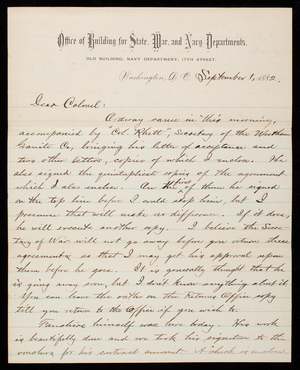 Office of Building for State, War, and Navy Departments,
OLD BUILDING, NAVY DEPARTMENT, 17TH STREET.
Washington, D. C. September 1, 1882.
Dear Colonel:
Ordway came in this morning,
accompanied by "Col. Rhett", Secretary of the Westham
Granite Co., bringing his letter of acceptance and
two other letters, copies of which I enclose. He
also signed the quintuplicate copies of the agreement
which I also enclose. On three of them he signed
on the top line before I could stop him, but I
presume that will make no difference. If it does,
he will execute another copy. I believe the Secre-
tary of War will not go away before you return these
agreements so that I may get his approval upon
them before he goes. It is generally thought that he
is going away soon, but I don't know anything about it.
You can leave the oaths on the Returns Office copy
till you return to the Office if you wish to.
himself was here today. His work
is beautifully done and we took his signature to the
vouchers for his contract amount